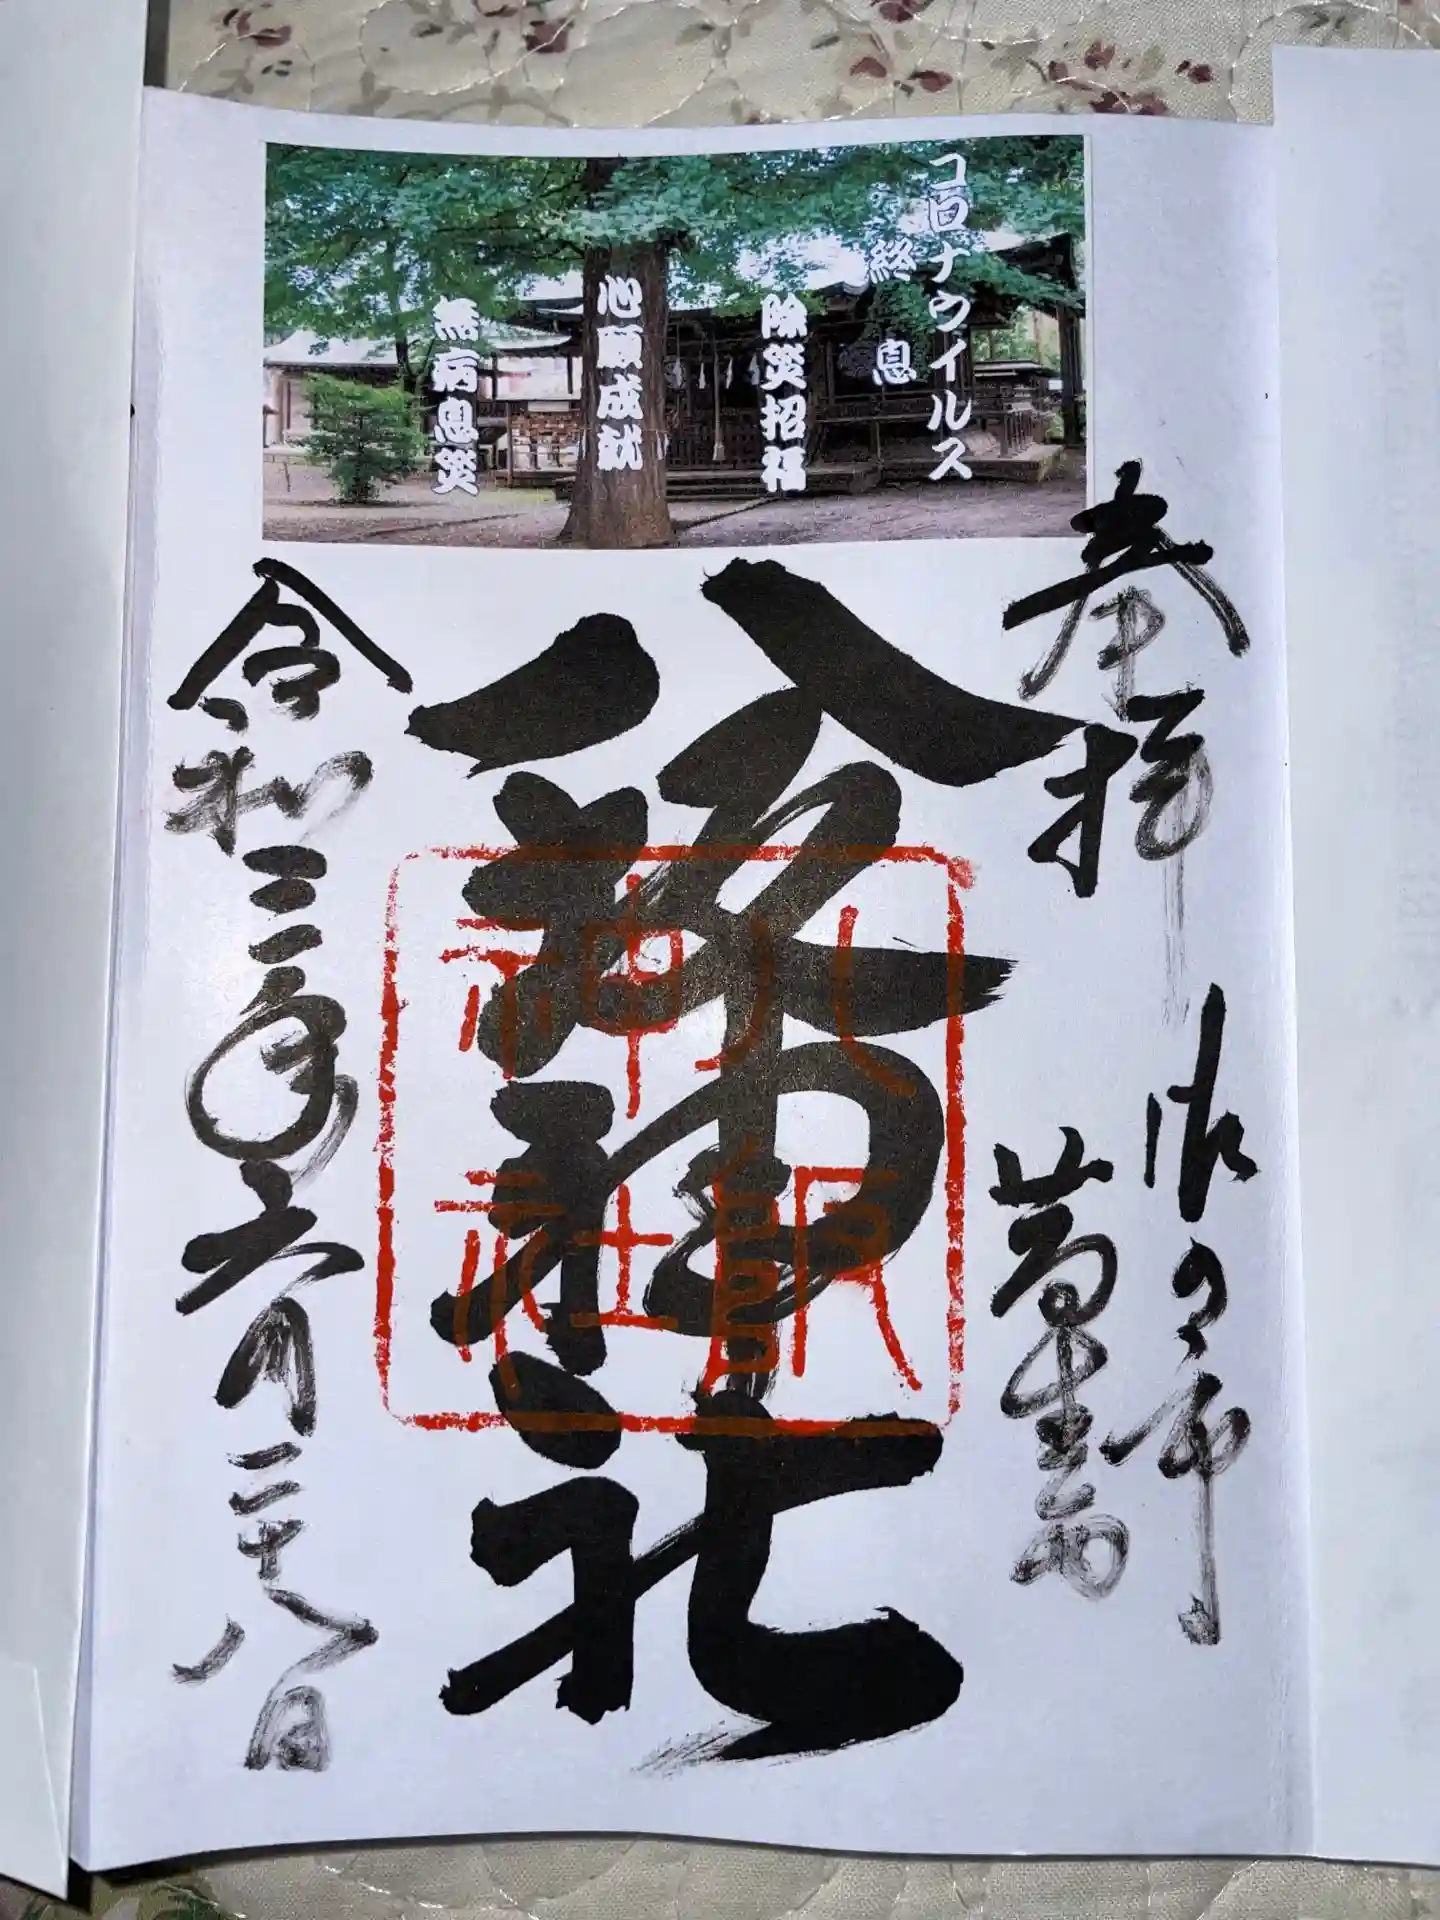 コロナウイルス
終息
除災招福
心願成就
無病息災
奉拝
佐の市
葛生町
八坂神社
八坂
神社
令和三年六月二十八日